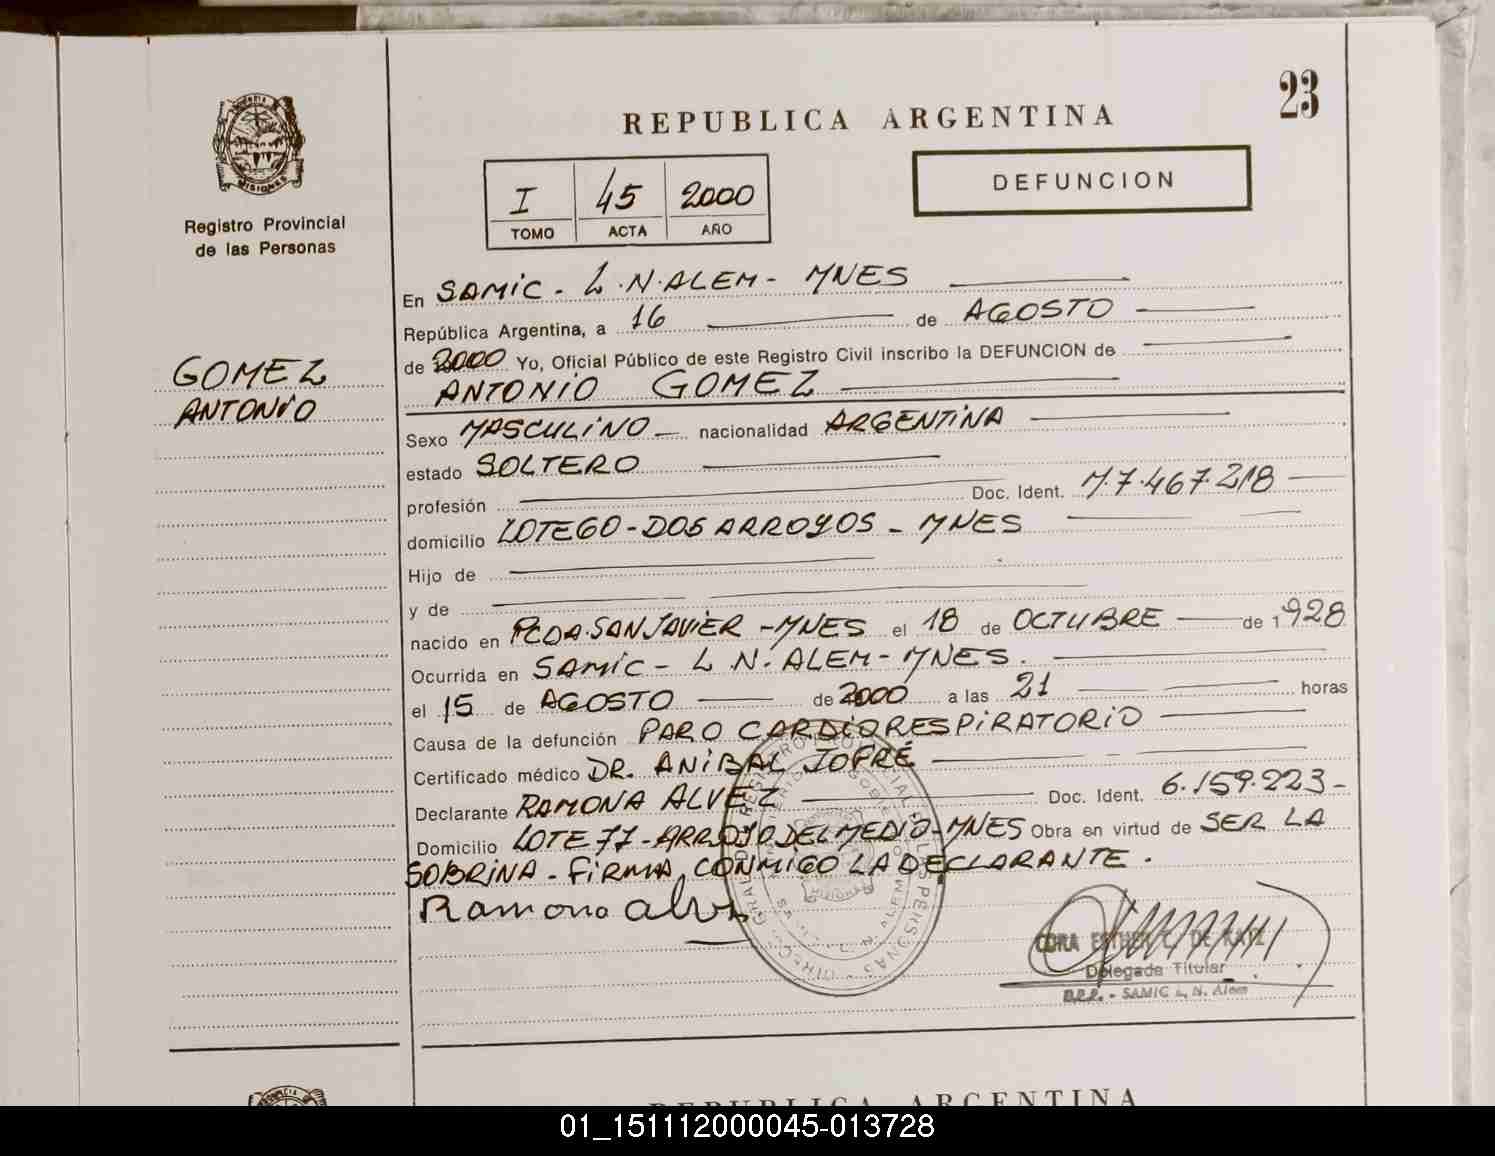 23
REPUBLICA ARGENTINA
DEFUNCION
I 45 2000
TOMO ACTA AÑO
MISIONES
Registro Provincial
de las Personas
GOMEZ
ANTONIO
En SAMIC - L.N.ALEM - MNES
República Argentina, a 16 de AGOSTO
de 2000 Yo, Oficial Público de este Registro Civil inscribo la DEFUNCION de
ANTONIO GOMEZ
Sexo MASCULINO nacionalidad ARGENTINA
estado SOLTERO
profesión Doc. Ident. M.7.467.218
domicilio LOTE 60 - DOS ARROYOS - MNES
Hijo de
y de
nacido en PCDA. SAN JAVIER - MNES el 18 de OCTUBRE de 1928
Ocurrida en SAMIC - L N. ALEM - MNES.
el 15 de AGOSTO de 2000 a las 21 horas
Causa de la defunción PARO CARDIORESPIRATORIO
Certificado médico DR. ANIBAL JOFRÉ
Declarante RAMONA ALVEZ Doc. Ident. 6.159.223-
Domicilio LOTE 77 - ARROYO DEL MEDIO - MNES Obra en virtud de SER LA
SOBRINA - FIRMA CONMIGO LA DECLARANTE.
Ramona
ESTHER DE
Delegada Titular
SAMIC L. N. Alem
REPUBLICA ARGENTINA
01_151112000045-013728